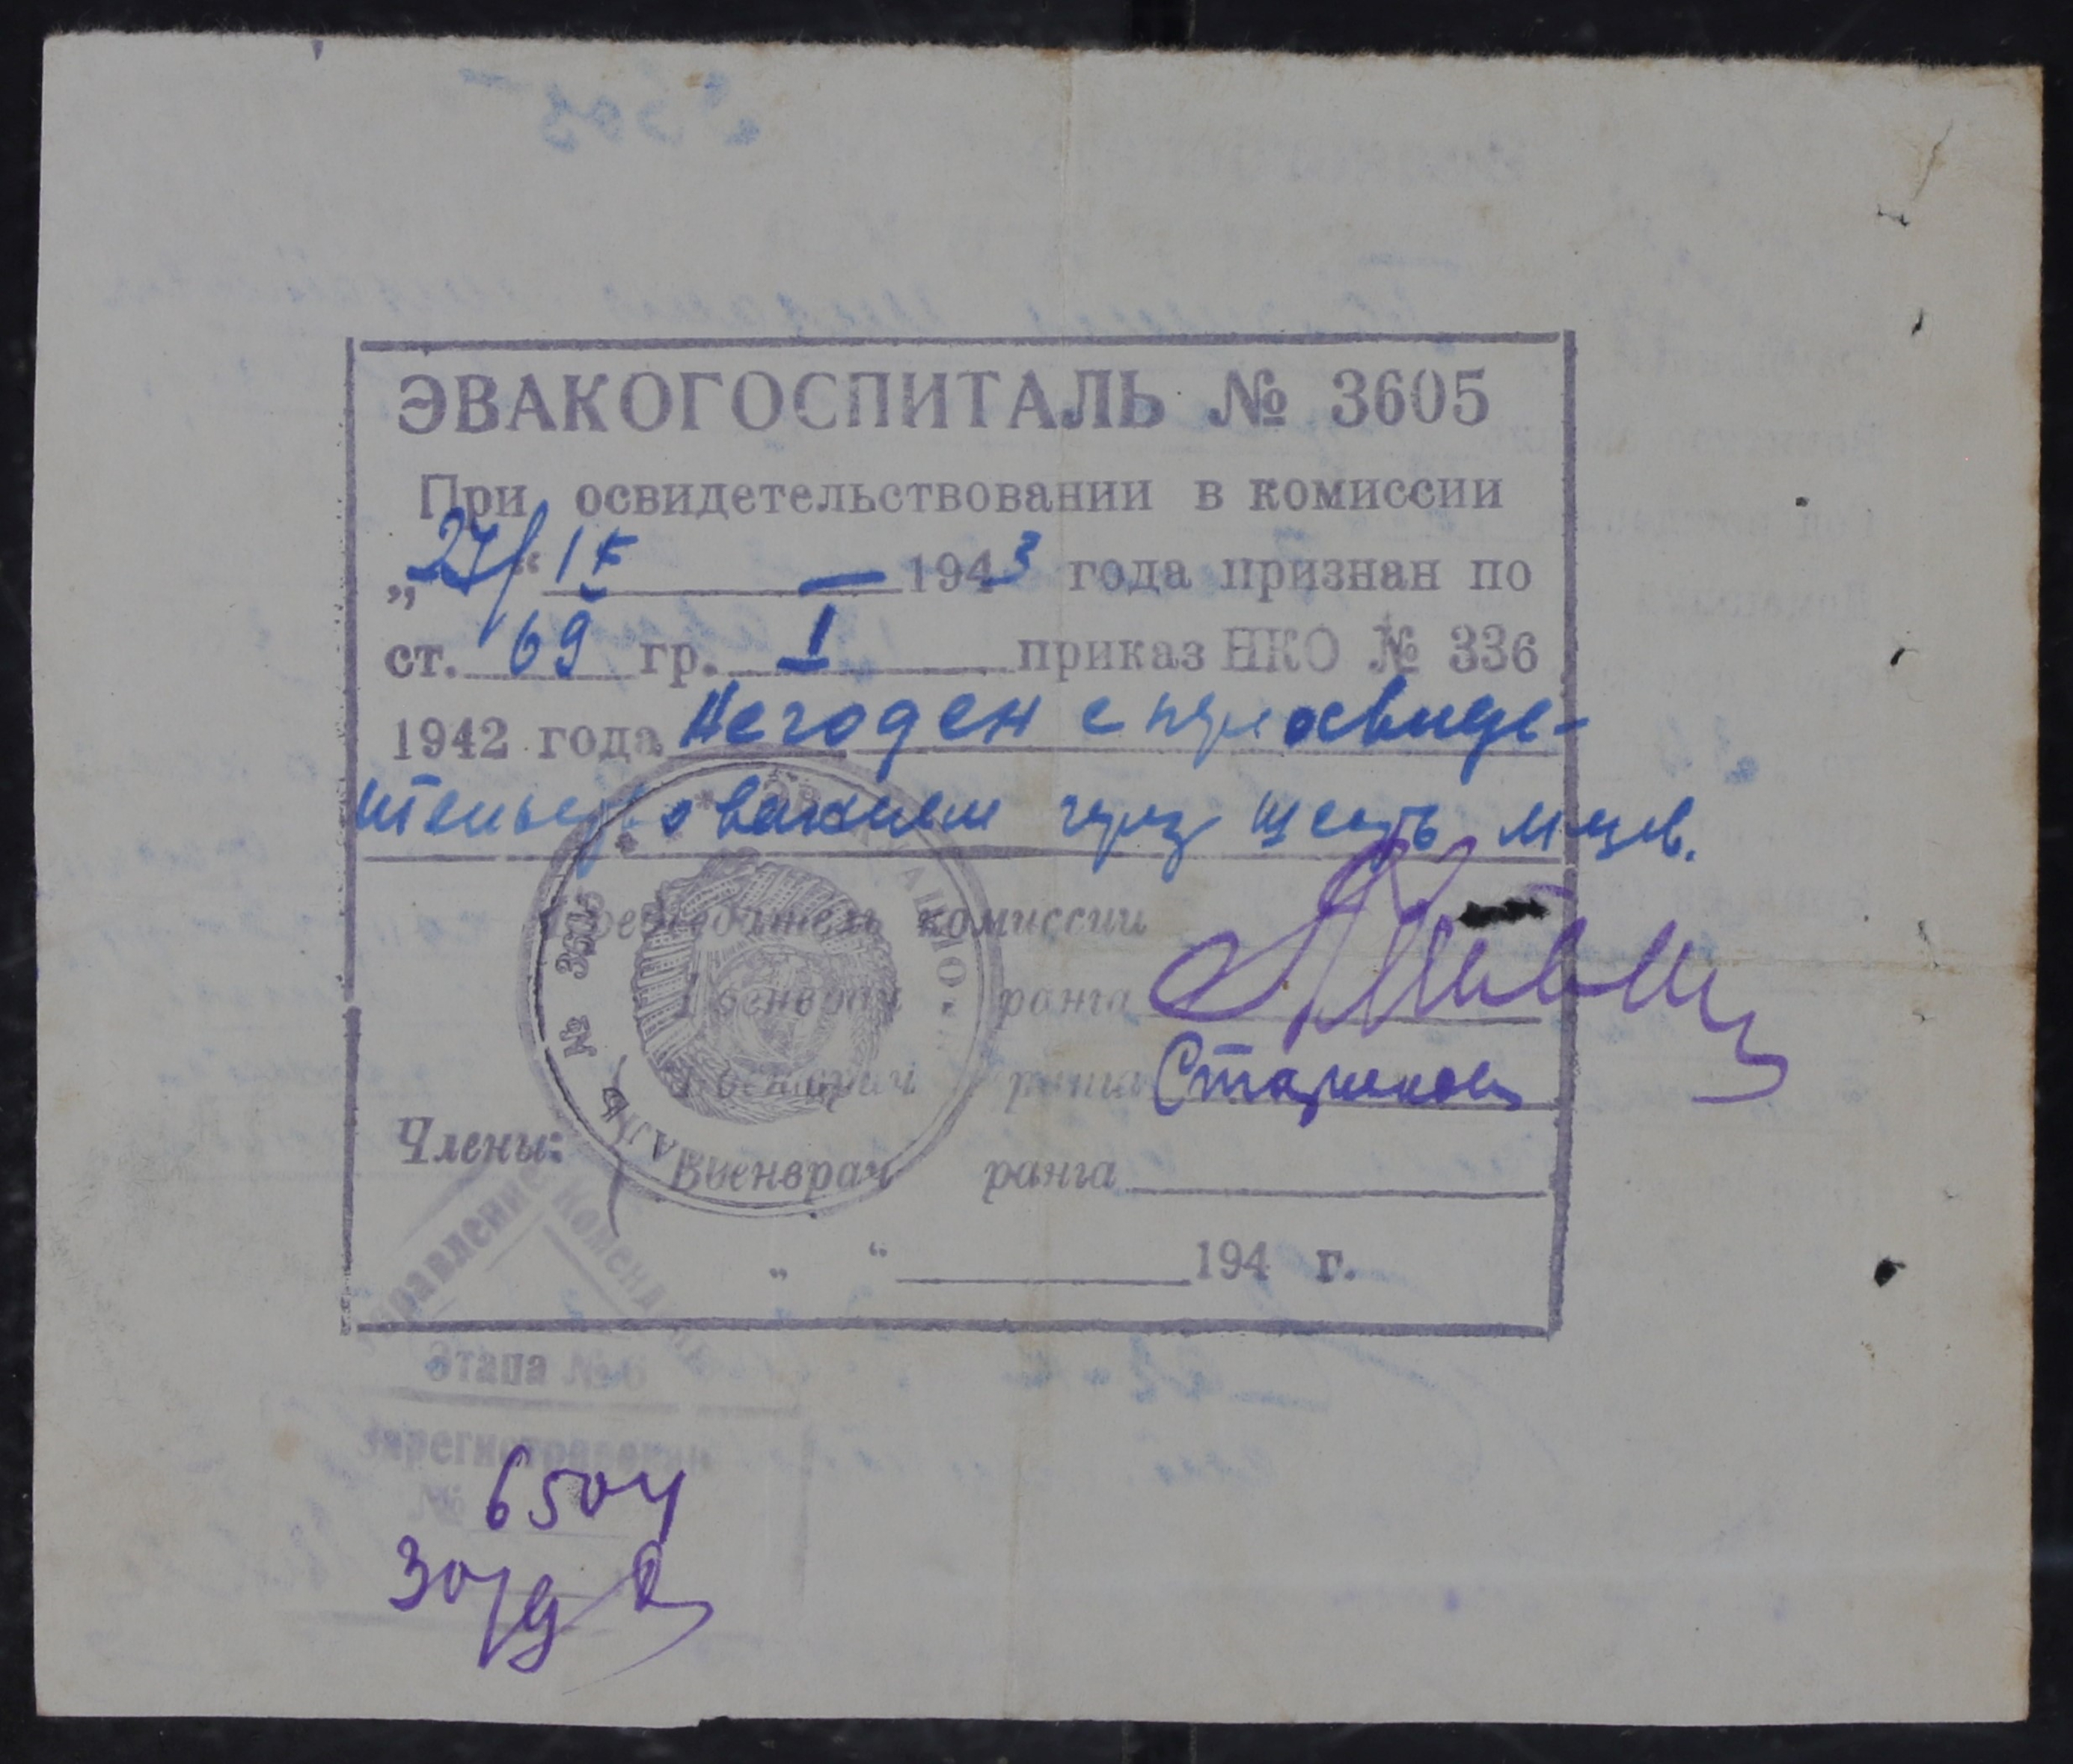 ЭВАКОГОСПИТАЛЬ № 3605
При освидетельствовании в комиссии
„27/“ IX 1943 года признан по
ст. 69 гр. I приказ НКО № 336
1942 года Негоден с переосвиде-
тельствованием через шесть месев.
Председатель комиссии
Военврач ранга
Военврач ранга Стариков
Члены:
Военврач ранга
„ “ 194 г.
№ 3605
Управление Коменданта
Этапа № 6
Зарегистрирован
№ 6504
30/9